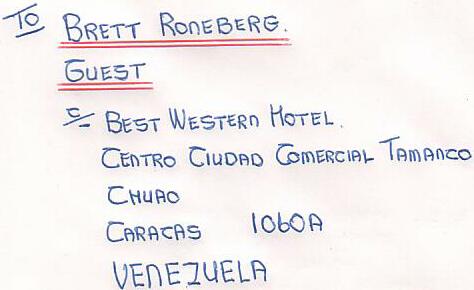 TO BRETT RONEBERG.
GUEST
c/- BEST WESTERN HOTEL.
CENTRO CIUDAD COMERCIAL TAMANCO
CHUAO
CARACAS 1060A
VENEZUELA